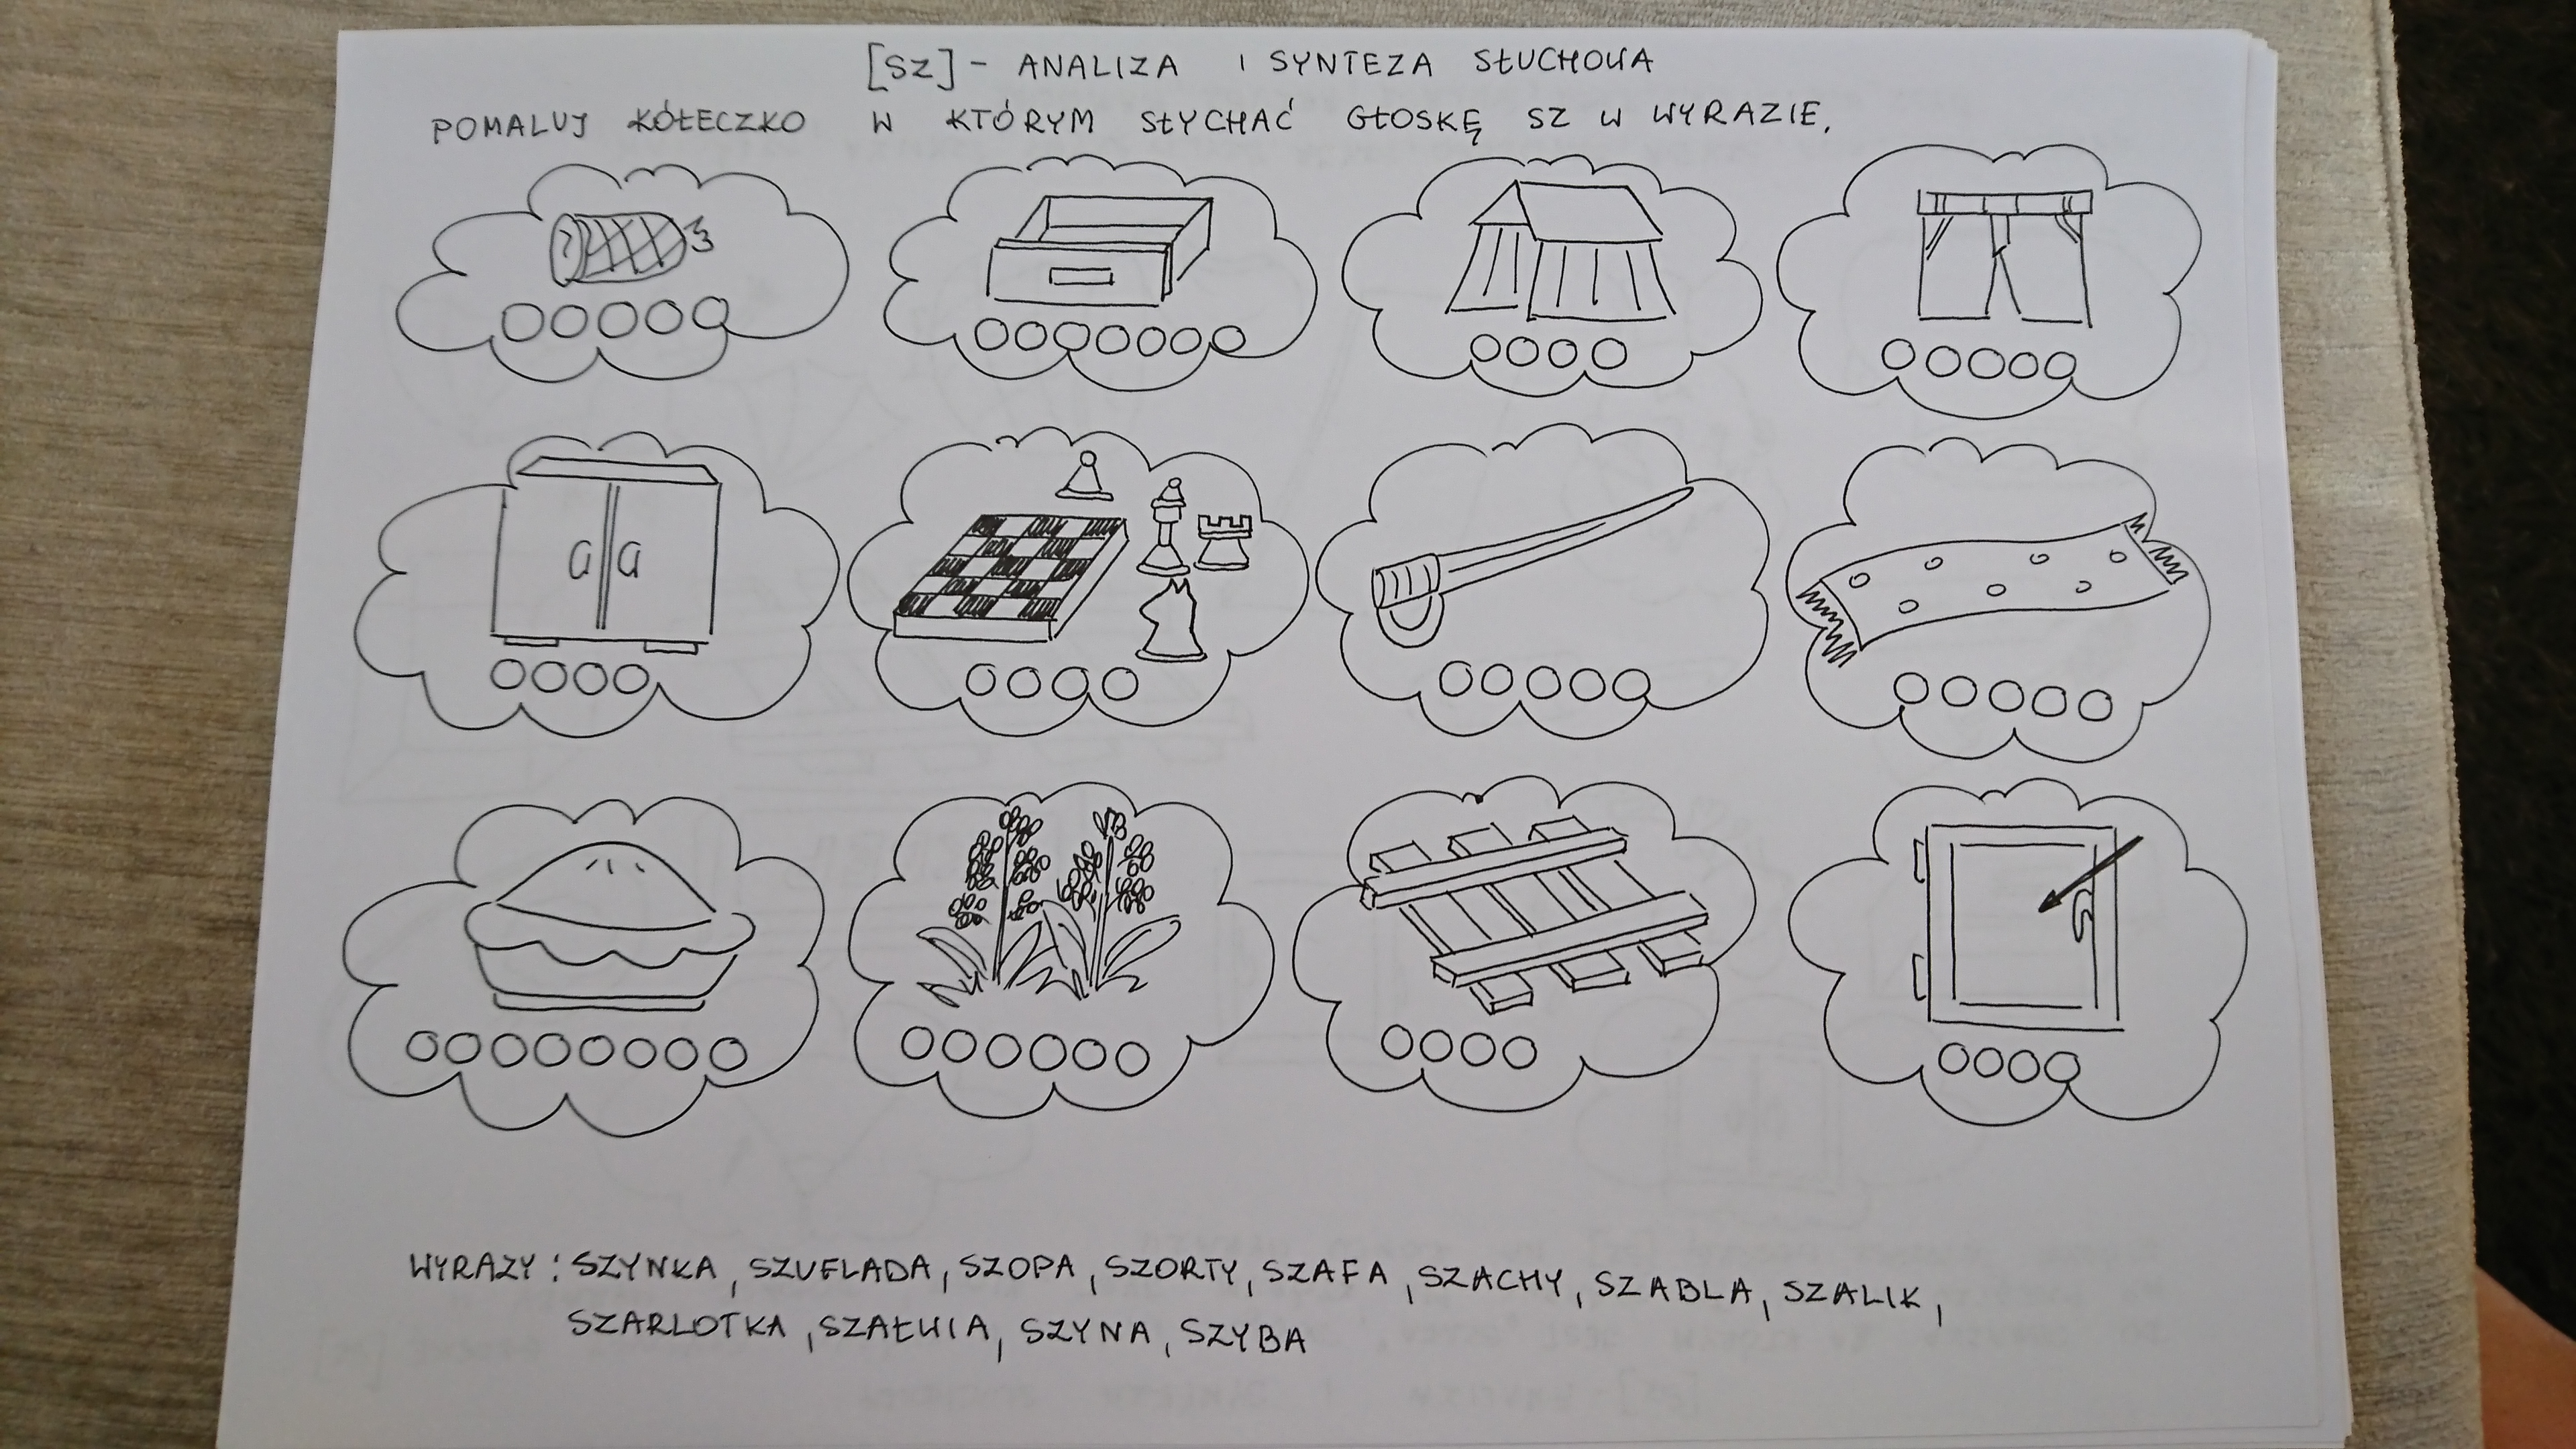 [SZ] - ANALIZA I SYNTEZA SŁUCHOWA
POMALUJ KÓŁECZKO W KTÓRYM SŁYCHAĆ GŁOSKĘ SZ W WYRAZIE.
WYRAZY : SZYNKA, SZUFLADA, SZOPA, SZORTY, SZAFA, SZACHY, SZABLA, SZALIK,
SZARLOTKA, SZAŁWIA, SZYNA, SZYBA